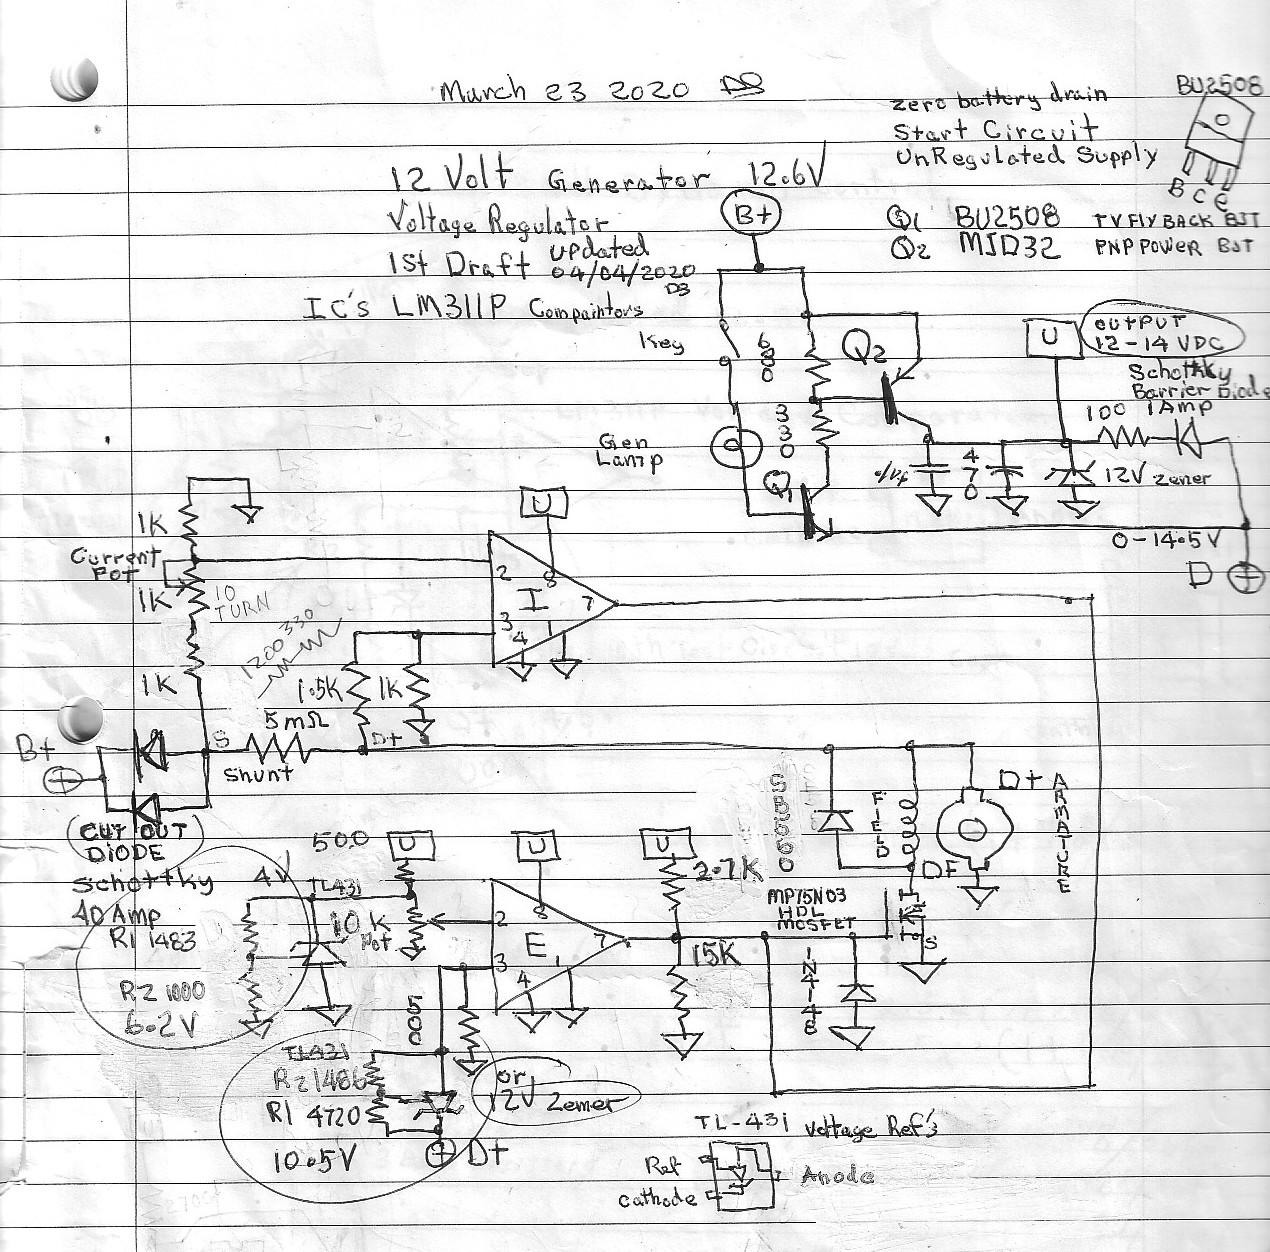 March 23 2020 DB
zero battery drain
Start Circuit
UnRegulated Supply
BU2508
B C E
12 Volt Generator 12.6V
Voltage Regulator
1st Draft updated
04/04/2020
DB
IC's LM311P Compaintors
B+
Q1 BU2508 TV FLY BACK BJT
Q2 MJD32 PNP POWER BJT
Key
680
Q2
U
OUTPUT
12-14 VDC
Schottky
Barrier Diode
100 1 Amp
330
Gen
Lamp
Q1
470
12V Zener
0-14.5V
D
1K
Current
Pot
1K
10
TURN
1K
U
2
8
I
7
3
4
1
1200 330
1.5K
1K
5mΩ
S
D+
Shunt
B+
CUT OUT
DIODE
Schottky
40 Amp
4V
R1 1483
R2 1000
6.2V
500
U
TL431
10K
Pot
U
2
8
E
7
3
4
1
U
2.7K
15K
SB560
FIELD
D+
ARMATURE
DF
MP75N03
HDL
MOSFET
S
1N4148
500
TL431
R2 1486
R1 4720
10.5V
or
12V Zemer
D+
TL-431 voltage Ref's
Ref
cathode
Anode